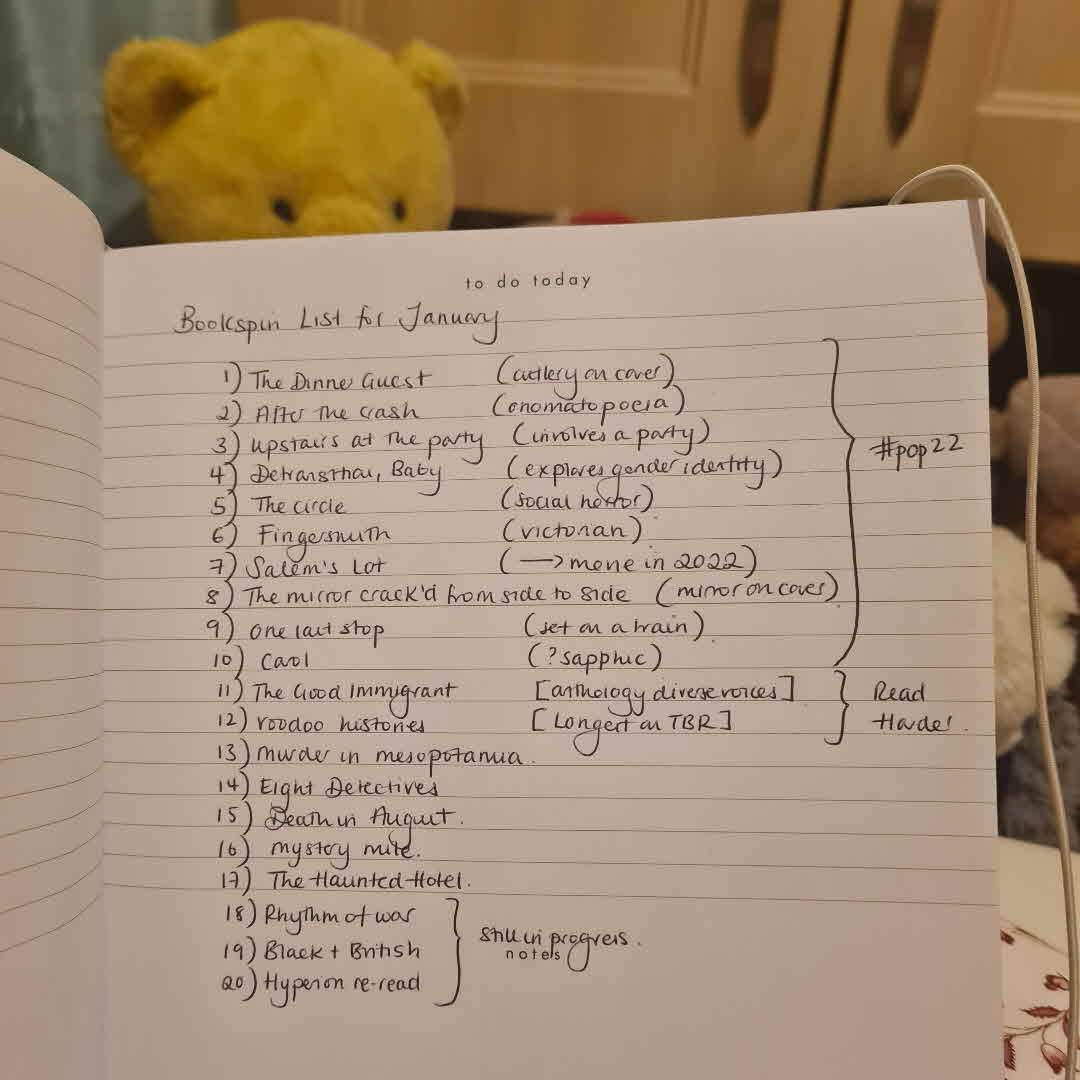 to do today
Bookspin List for January
1) The Dinner Guest (cutlery on cover)
2) After the crash (onomatopoeia)
3) upstairs at the party (involves a party)
4) Detransition, Baby (explores gender identity)
5) The circle (social horror)
6) Fingersmith (victorian)
7) Salem's Lot (→ movie in 2022)
8) The mirror crack'd from side to side (mirror on cover)
9) one last stop (set on a train)
10) Carol (?sapphic)
#pop22
11) The Good Immigrant [anthology diverse voices]
12) voodoo histories [Longest on TBR]
Read
Harder.
13) murder in mesopotamia.
14) Eight Detectives
15) Death in August.
16) mystery mile.
17) The Haunted Hotel.
18) Rhythm of war
19) Black + British
20) Hyperion re-read
Still in progress.
notes